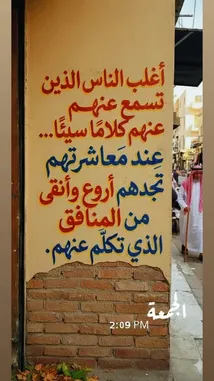 أغلب الناس الذين
تسمع عنهم
عنهم كلامًا سيئًا...
عند مَعاشرتهم
تجدهم أروع وأنقى
من المنافق
الذي تكلَّم عنهم.
الجمعة
2:09 PM